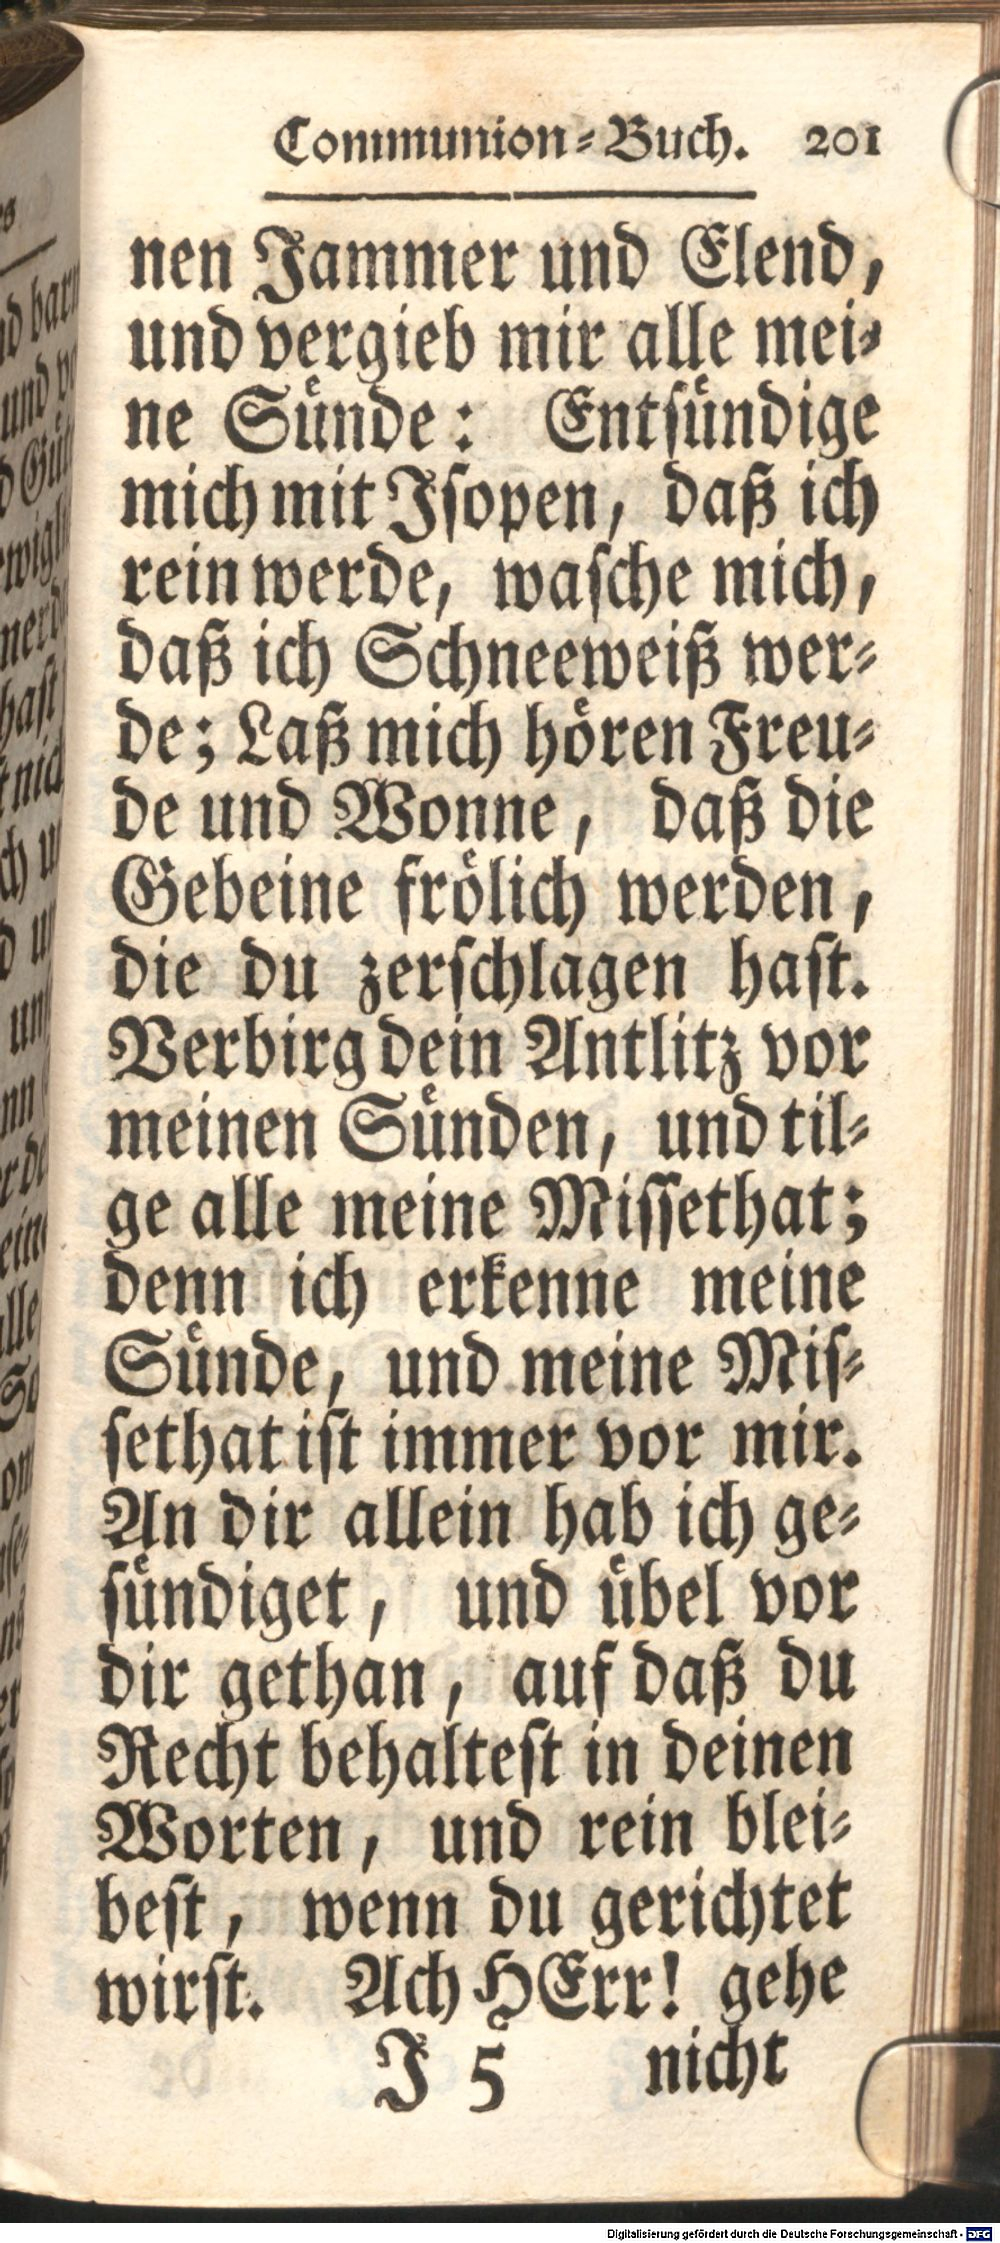 Communion-Buch. 201
nen Jammer und Elend,
und vergieb mir alle mei-
ne Suͤnde: Entsuͤndige
mich mit Jsopen, daß ich
rein werde, wasche mich,
daß ich Schneeweiß wer-
de; Laß mich hoͤren Freu-
de und Wonne, daß die
Gebeine froͤlich werden,
die du zerschlagen hast.
Verbirg dein Antlitz vor
meinen Suͤnden, und til-
ge alle meine Missethat;
denn ich erkenne meine
Suͤnde, und meine Mis-
sethat ist immer vor mir.
An dir allein hab ich ge-
suͤndiget, und uͤbel vor
dir gethan, auf daß du
Recht behaltest in deinen
Worten, und rein blei-
best, wenn du gerichtet
wirst. Ach HErr! gehe
J 5 nicht
Digitalisierung gefördert durch die Deutsche Forschungsgemeinschaft - DFG